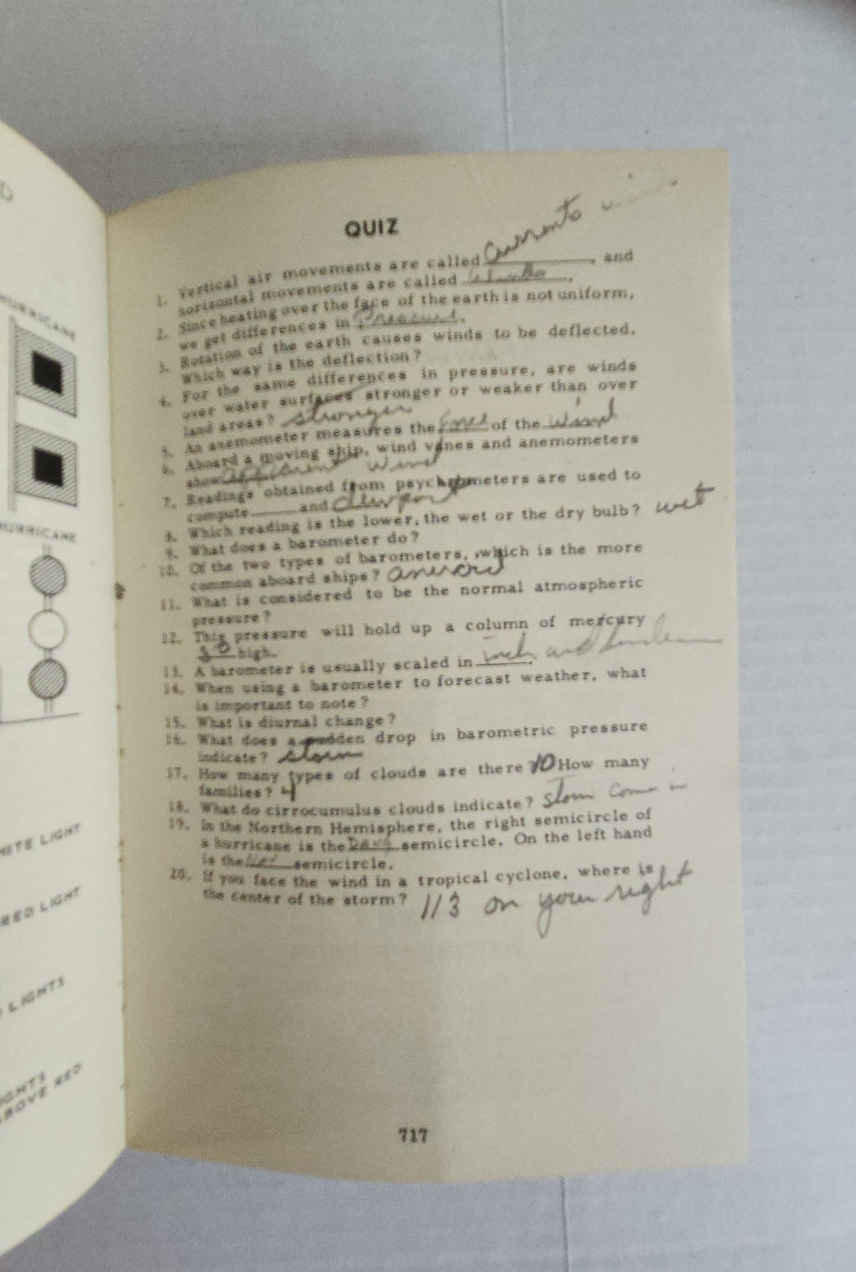 HURRICANE
HURRICANE
WHITE LIGHT
RED LIGHT
LIGHTS
LIGHTS
ABOVE RED
QUIZ
1. Vertical air movements are called Currents, and
horizontal movements are called winds.
2. Since heating over the face of the earth is not uniform,
we get differences in Pressure.
3. Rotation of the earth causes winds to be deflected.
Which way is the deflection?
4. For the same differences in pressure, are winds
over water surfaces stronger or weaker than over
land areas? stronger
5. An anemometer measures the force of the wind
6. Aboard a moving ship, wind vanes and anemometers
show apparent wind
7. Readings obtained from psychrometers are used to
compute ____ and dewpoint
8. Which reading is the lower, the wet or the dry bulb? wet
9. What does a barometer do?
10. Of the two types of barometers, which is the more
common aboard ships? aneroid
11. What is considered to be the normal atmospheric
pressure?
12. This pressure will hold up a column of mercury
30 high.
13. A barometer is usually scaled in inch and
14. When using a barometer to forecast weather, what
is important to note?
15. What is diurnal change?
16. What does a sudden drop in barometric pressure
indicate? storm
17. How many types of clouds are there 10 How many
families? 4
18. What do cirrocumulus clouds indicate? Storm Come in
19. In the Northern Hemisphere, the right semicircle of
a hurricane is the Dang semicircle. On the left hand
is the semicircle.
20. If you face the wind in a tropical cyclone, where is
the center of the storm? 113 on your right
717